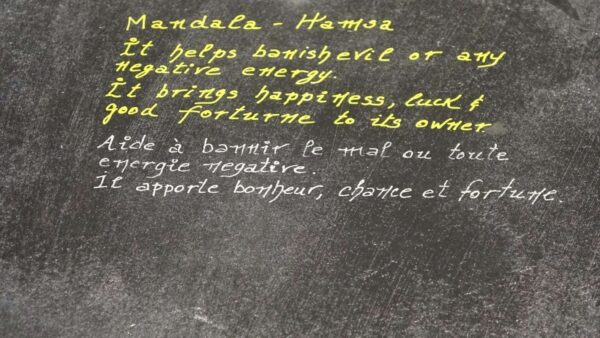 Mandala - Hamsa
It helps banish evil or any
negative energy.
It brings happiness, luck &
good forturne to its owner
Aide à bannir le mal ou toute
energie negative.
Il apporte bonheur, chance et fortune.